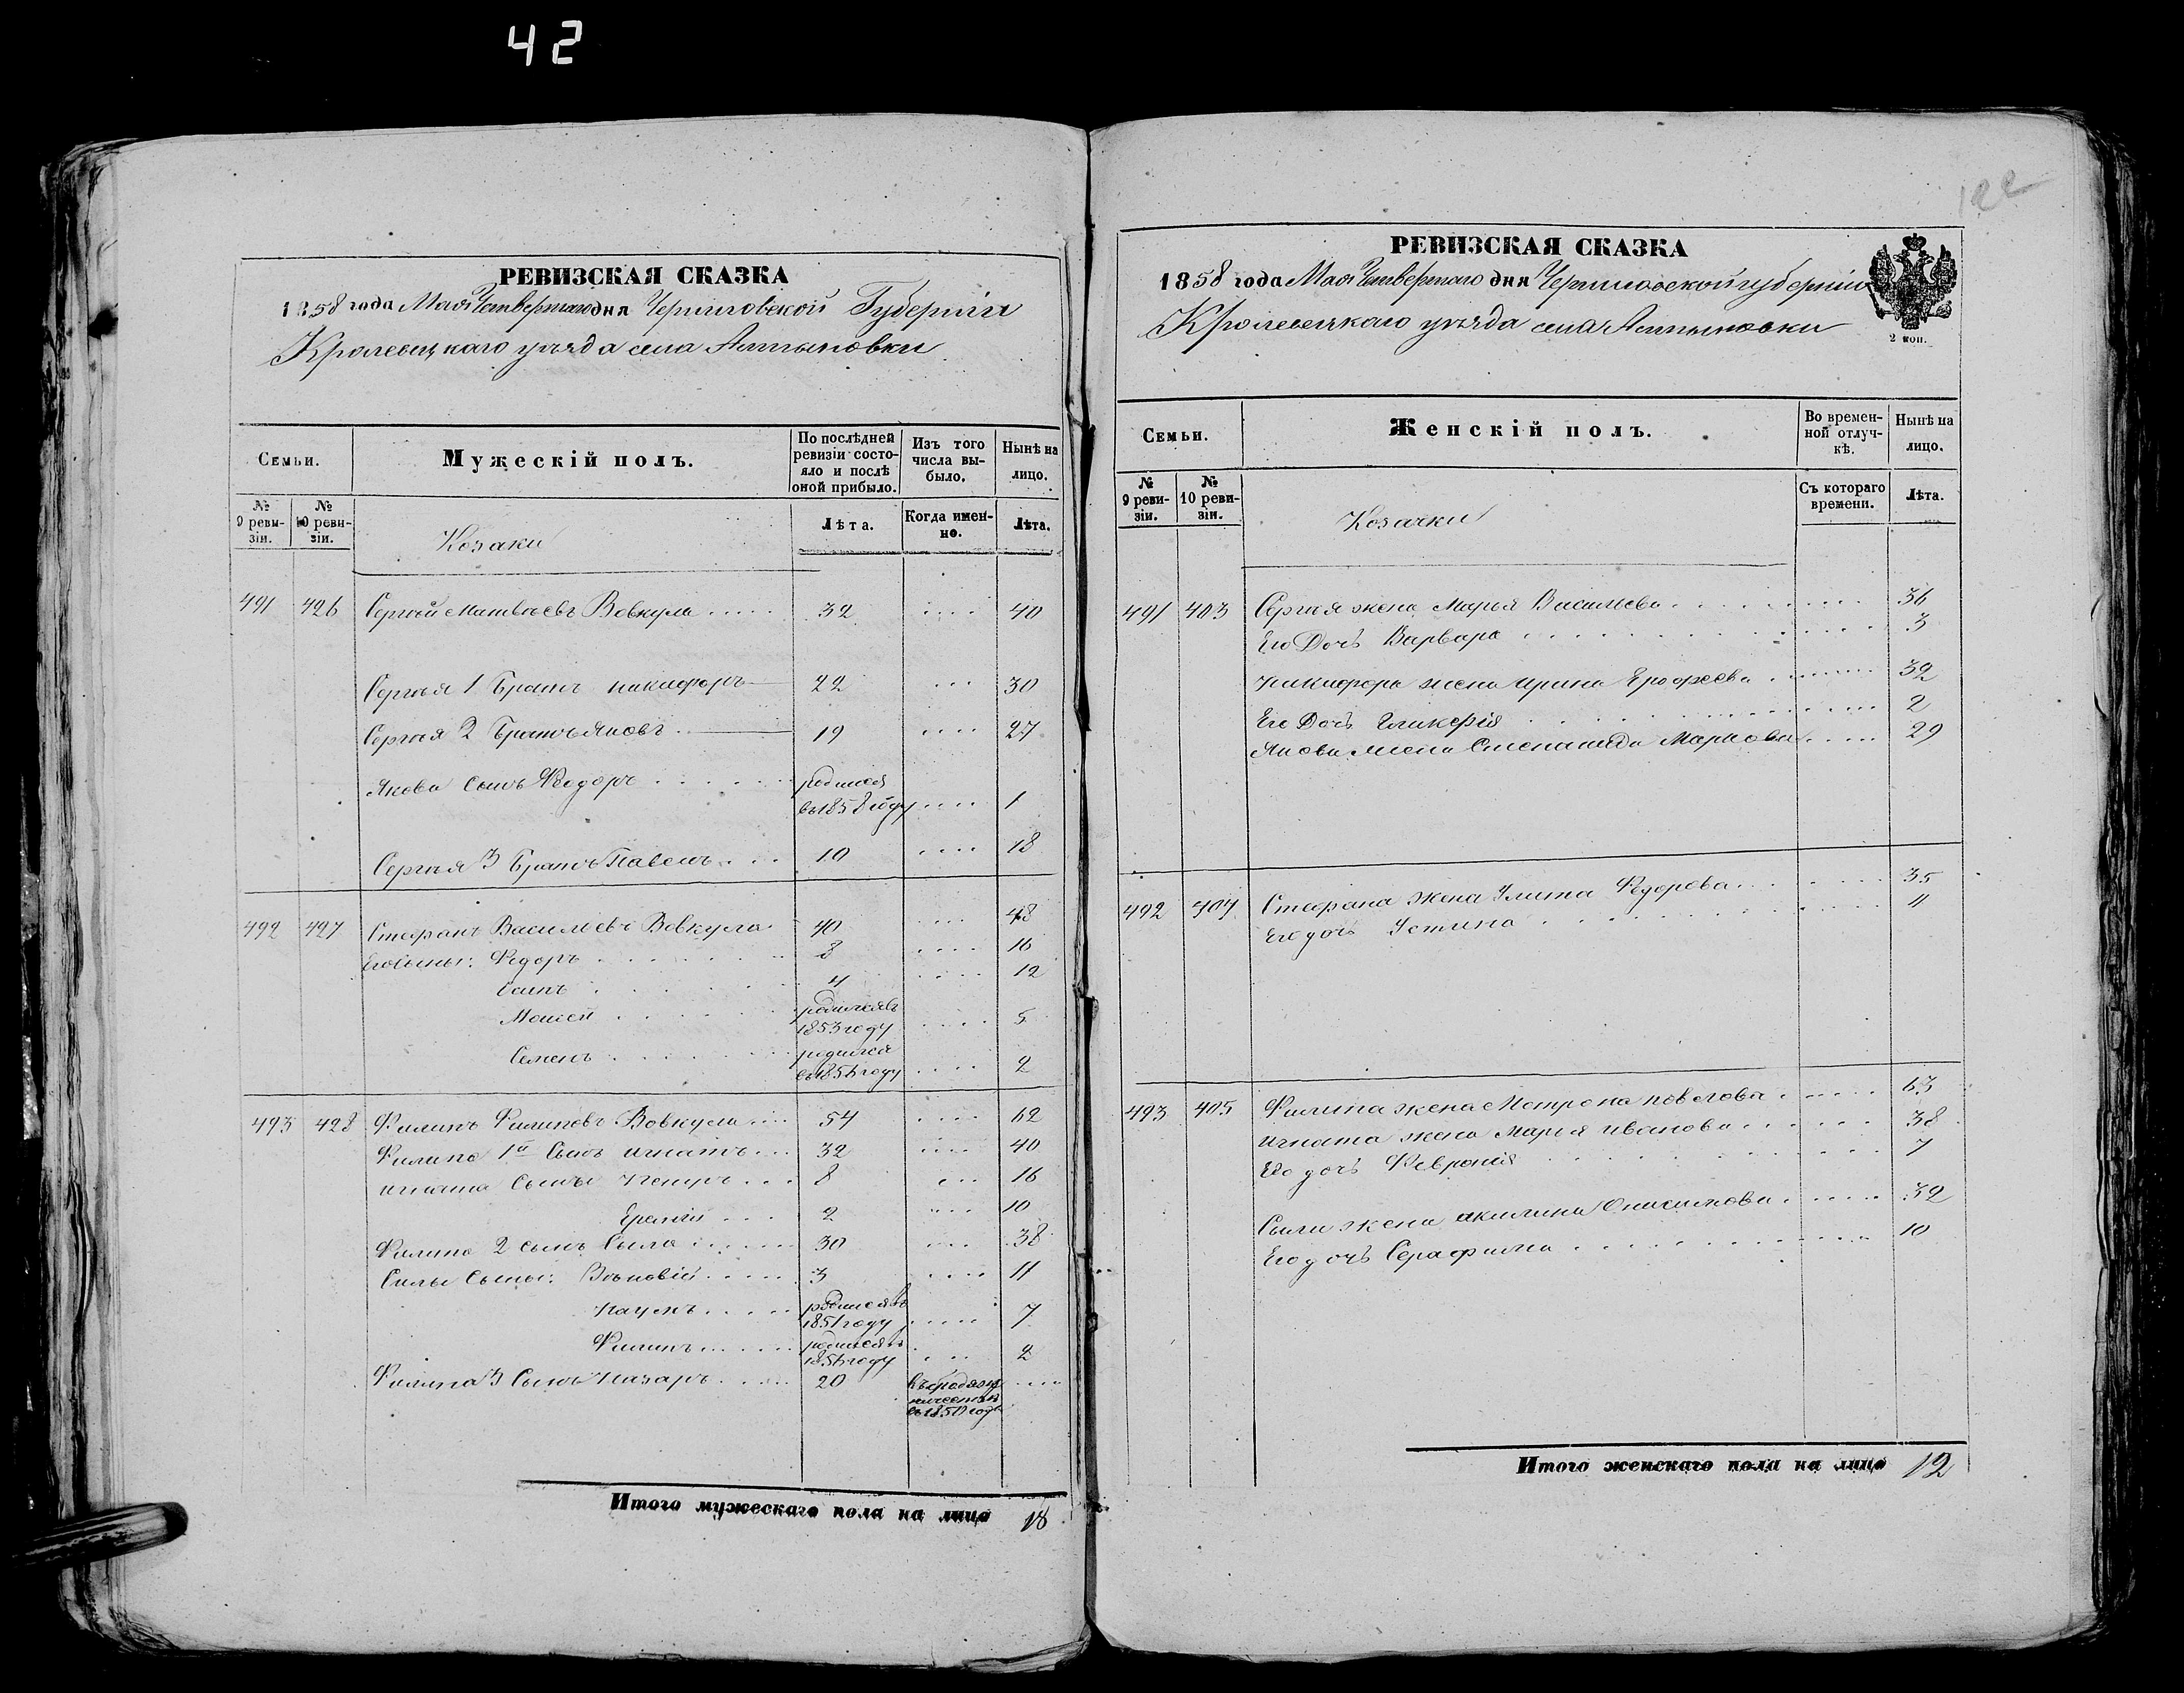 42
РЕВИЗСКАЯ СКАЗКА
1858 года Мая Четвертаго дня Черниговской Губернiи
Кролевецкаго уѣзда села Алтыновки
Семьи.
Мужескiй полъ.
По послѣдней ревизiи состояло и послѣ оной прибыло.
Изъ того числа выбыло.
Нынѣ на лицо.
№ 9 ревизiи.
№ 10 ревизiи.
Козаки
Лѣта.
Когда именно.
Лѣта.
491 426 Сергѣй Матвѣевъ Вовкула ..... 32 .... 40
Сергѣя 1 Братъ никифоръ 22 ... 30
Сергѣя 2 Братъ Яковъ 19 .... 27
Якова Сынъ Ѳедоръ ..... родился въ 1858 году .... 1
Сергѣя 3 Братъ Павелъ ... 10 .... 18
492 427 Стефанъ Васильевъ Вовкула 40 .... 48
Его Сыны: Ѳедоръ ..... 8 .... 16
4 .... 12
Моисей ..... родился въ 1853 году .... 5
Семенъ ..... родился въ 1856 году .... 2
493 428 Филипъ Филиповъ Вовкула ... 54 .... 62
Филипа 1й Сынъ игнатъ ... 32 .... 40
игната Сыны Петръ ... 8 ... 16
2 ... 10
Филипа 2 сынъ Сыла ..... 30 ... 38
Силы Сыны: ..... 3 .... 11
Наумъ ..... родился въ 1851 году ..... 7
Филипъ ..... родился въ 1856 году ... 2
Филипа 3 Сынъ Назаръ ..... 20 ....
Итого мужескаго пола на лицо 18
122
РЕВИЗСКАЯ СКАЗКА
1858 года Мая Четвертаго дня Черниговской губернiи
Кролевецкаго уѣзда села Алтыновки
2 коп.
Семьи.
Женскiй полъ.
Во временной отлучкѣ.
Нынѣ на лицо.
№ 9 ревизiи.
№ 10 ревизiи.
Козачки
Съ котораго времени.
Лѣта.
491 403 Сергѣя жена Марья Васильева ..... 36
Его Дочь Варвара ..... 3
никифора жена ирина Ерофеева ..... 32
Его Дочь Гликерiя ..... 2
Якова жена Степанида Маркова .... 29
492 404 Стефана жена Улита Ѳедорова ..... 35
Его дочь Устина ..... 11
493 405 Филипа жена Мотрона павлова ..... 63
игната жена Марья иванова ..... 38
Его дочь Февронiя ..... 7
Сылы жена акилина Онисимова ..... 32
Его дочь Серафима ..... 10
Итого женскаго пола на лицо 12